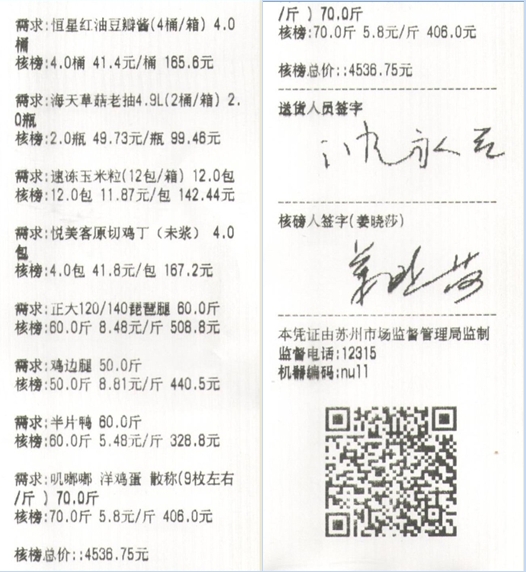 需求:恒星红油豆瓣酱(4桶/箱) 4.0
桶
核榜:4.0桶 41.4元/桶 165.6元
需求:海天草菇老抽4.9L(2桶/箱) 2.
0瓶
核榜:2.0瓶 49.73元/瓶 99.46元
需求:速冻玉米粒(12包/箱) 12.0包
核榜:12.0包 11.87元/包 142.44元
需求:悦美客原切鸡丁（未浆） 4.0
包
核榜:4.0包 41.8元/包 167.2元
需求:正大120/140琵琶腿 60.0斤
核榜:60.0斤 8.48元/斤 508.8元
需求:鸡边腿 50.0斤
核榜:50.0斤 8.81元/斤 440.5元
需求:半片鸭 60.0斤
核榜:60.0斤 5.48元/斤 328.8元
需求:叽嘟嘟 洋鸡蛋 散称(9枚左右
/斤 ) 70.0斤
核榜:70.0斤 5.8元/斤 406.0元
核榜总价::4536.75元
/斤 ) 70.0斤
核榜:70.0斤 5.8元/斤 406.0元
核榜总价::4536.75元
送货人员签字
核磅人签字(姜晓莎)
姜晓莎
本凭证由苏州市场监督管理局监制
监督电话:12315
机器编码:null